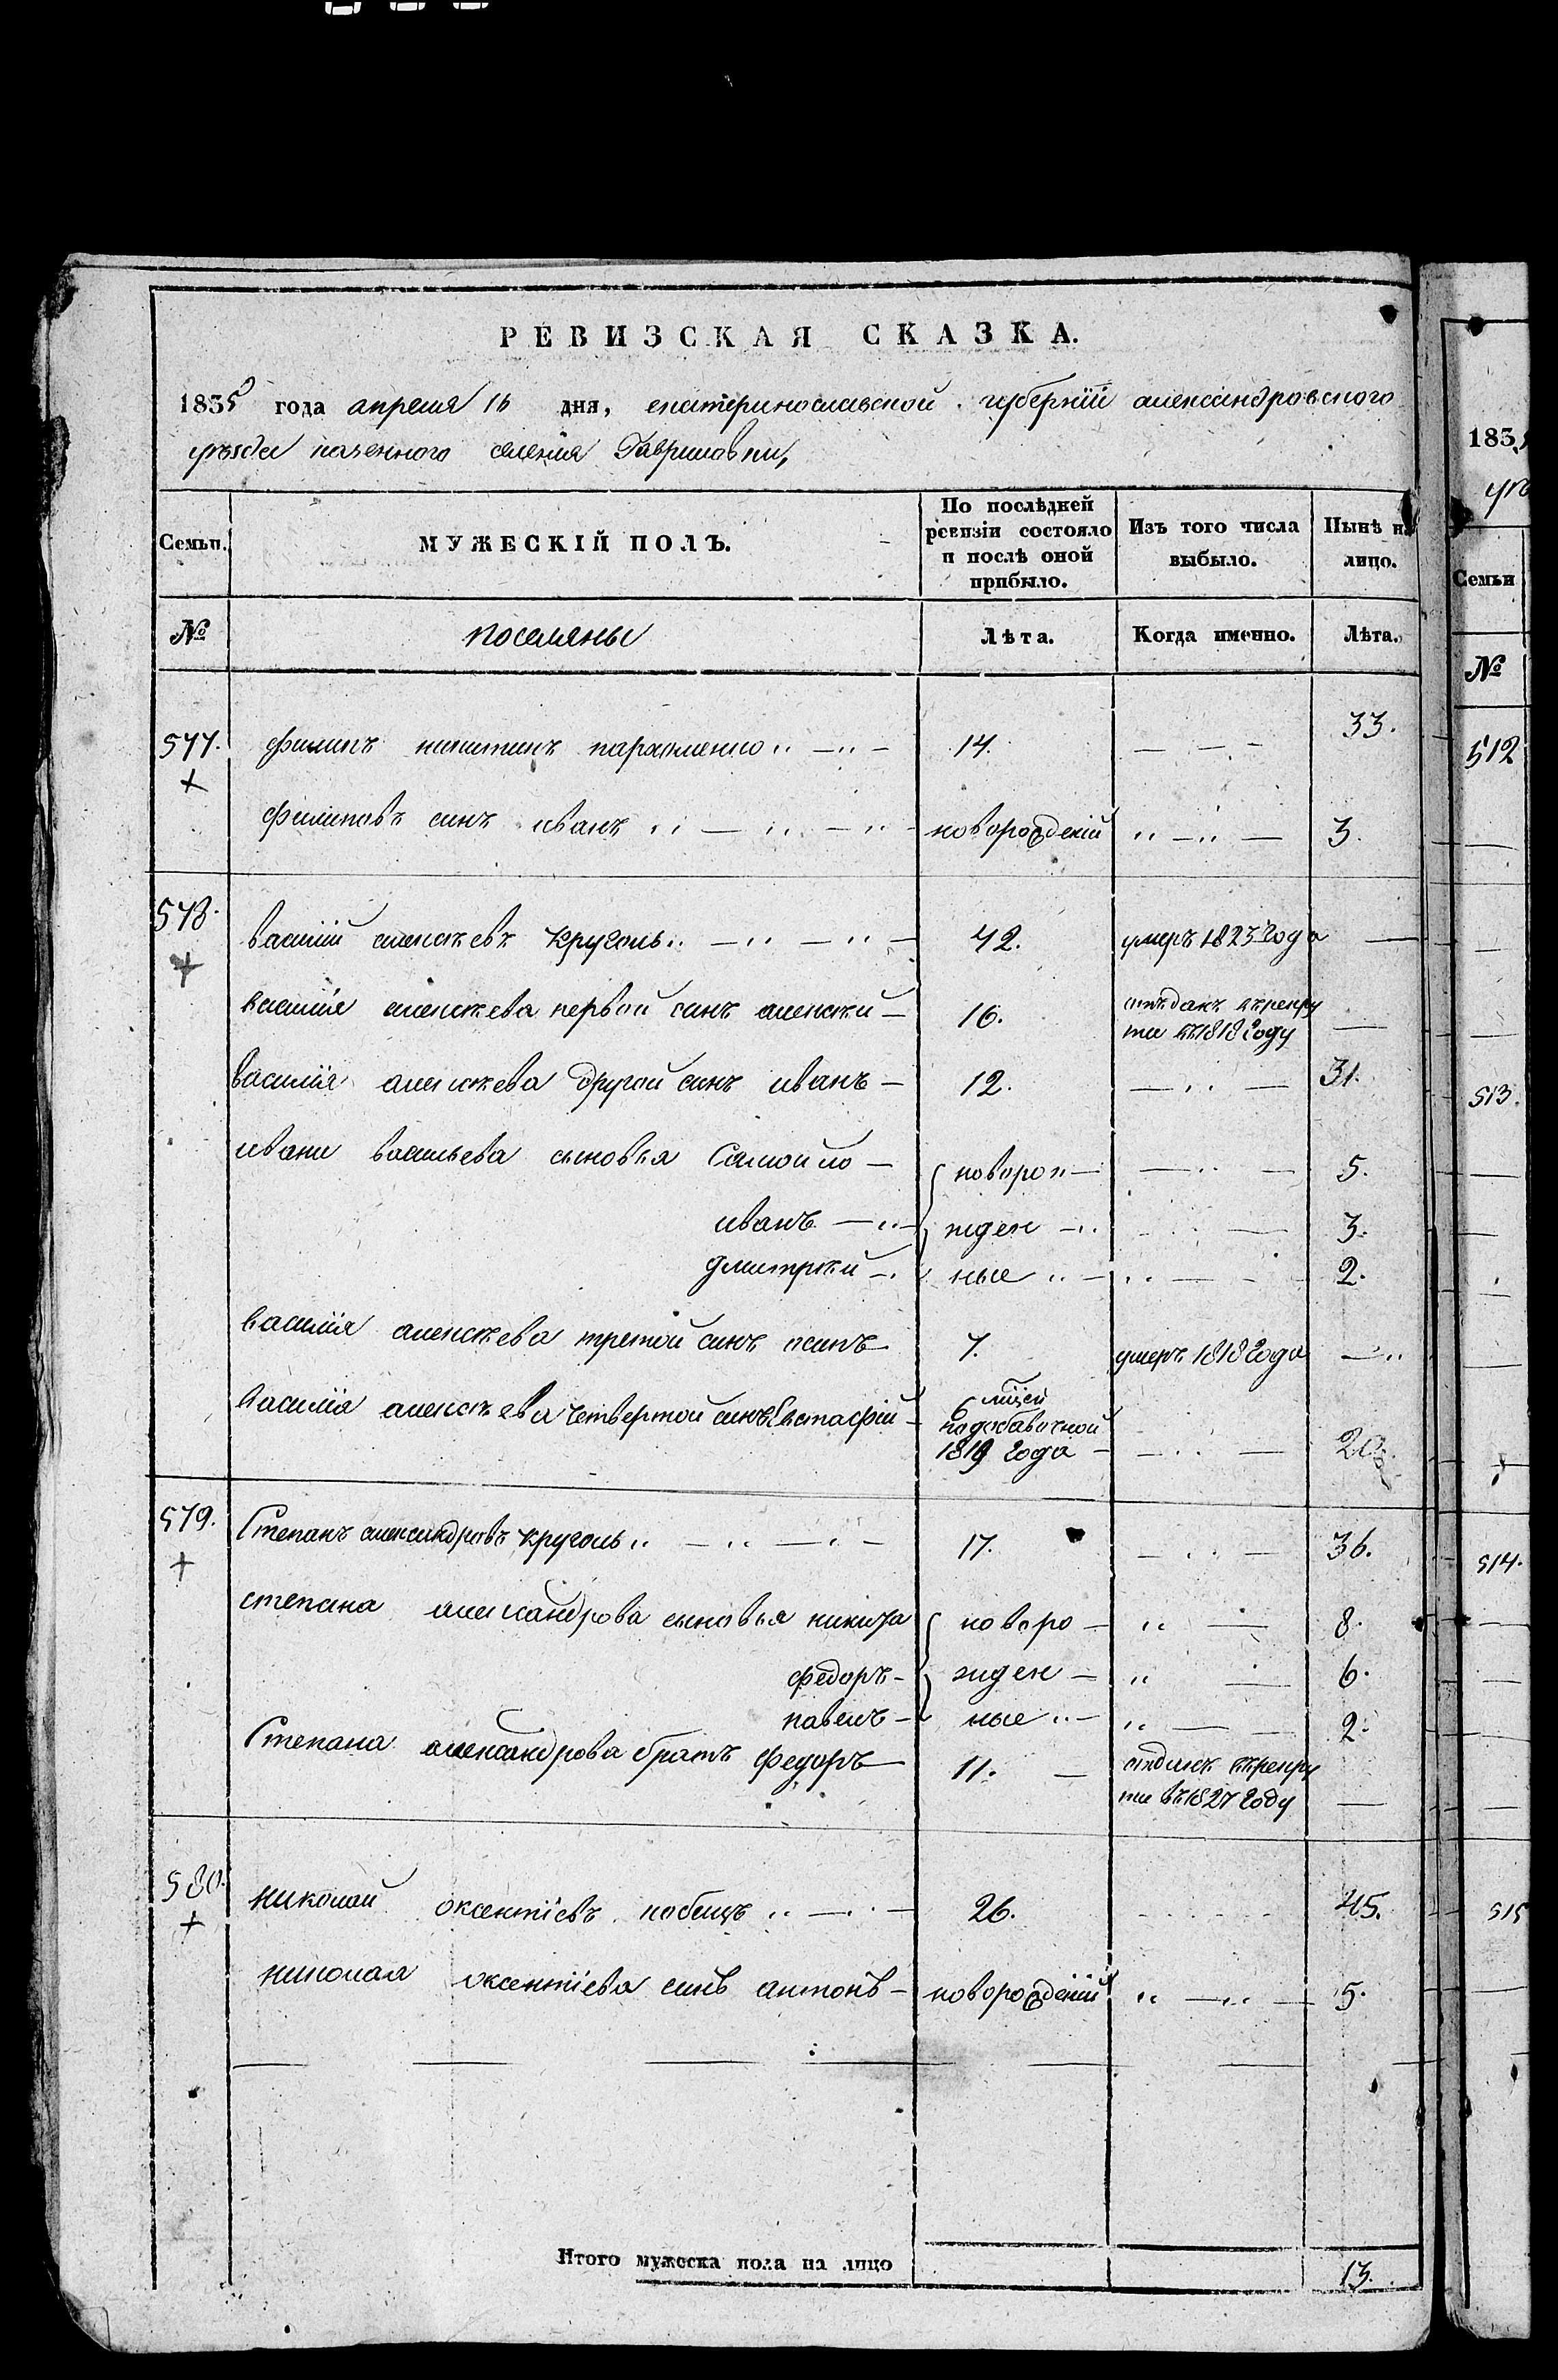 РЕВИЗСКАЯ СКАЗКА.
1835 года апреля 16 дня, екатеринославской губернїй александровского
уѣзда казенного селенїя Гавриловки,
Семьи. МУЖЕСКІЙ ПОЛЪ. По послѣдней ревизіи состояло и послѣ оной прибыло. Изъ того числа выбыло. Нынѣ на лицо.
№ поселяны Лѣта. Когда именно. Лѣта.
577. филипъ никитинъ пархоменко 14. 33.
филиповъ синъ иванъ новорожденїй 3.
578. василїй алексѣевъ Круголь 42. умеръ 1823 Года —
василїя алексѣева первой синъ алексѣй 16. отъданъ въ рекру
ти въ 1818 Году —
василїя алексѣева другой синъ иванъ 12. 31.
ивана васильева сыновья Самойло новорож 5.
иванъ ден 3.
дмитрѣй ные 2.
василїя алексѣева третой синъ осипъ 7. умеръ 1818 Года —
василїя алексѣева четвертой синъ Евстафїй 6 мцей
по добавочной
1819 Года 20.
579. Степанъ александровъ Круголь 17. 36.
степана александрова сыновья никита новоро 8.
федоръ жден 6.
павелъ ные 2.
Степана александрова братъ Федоръ 11. отданъ въ рекру
ти въ 1827 Году —
580. николай оксентїевъ кобецъ 26. 45.
николая оксентїева синъ антонъ новорожденїй 5.
Итого мужеска пола на лицо 13.
183
Семьи
№
512
513.
514.
515